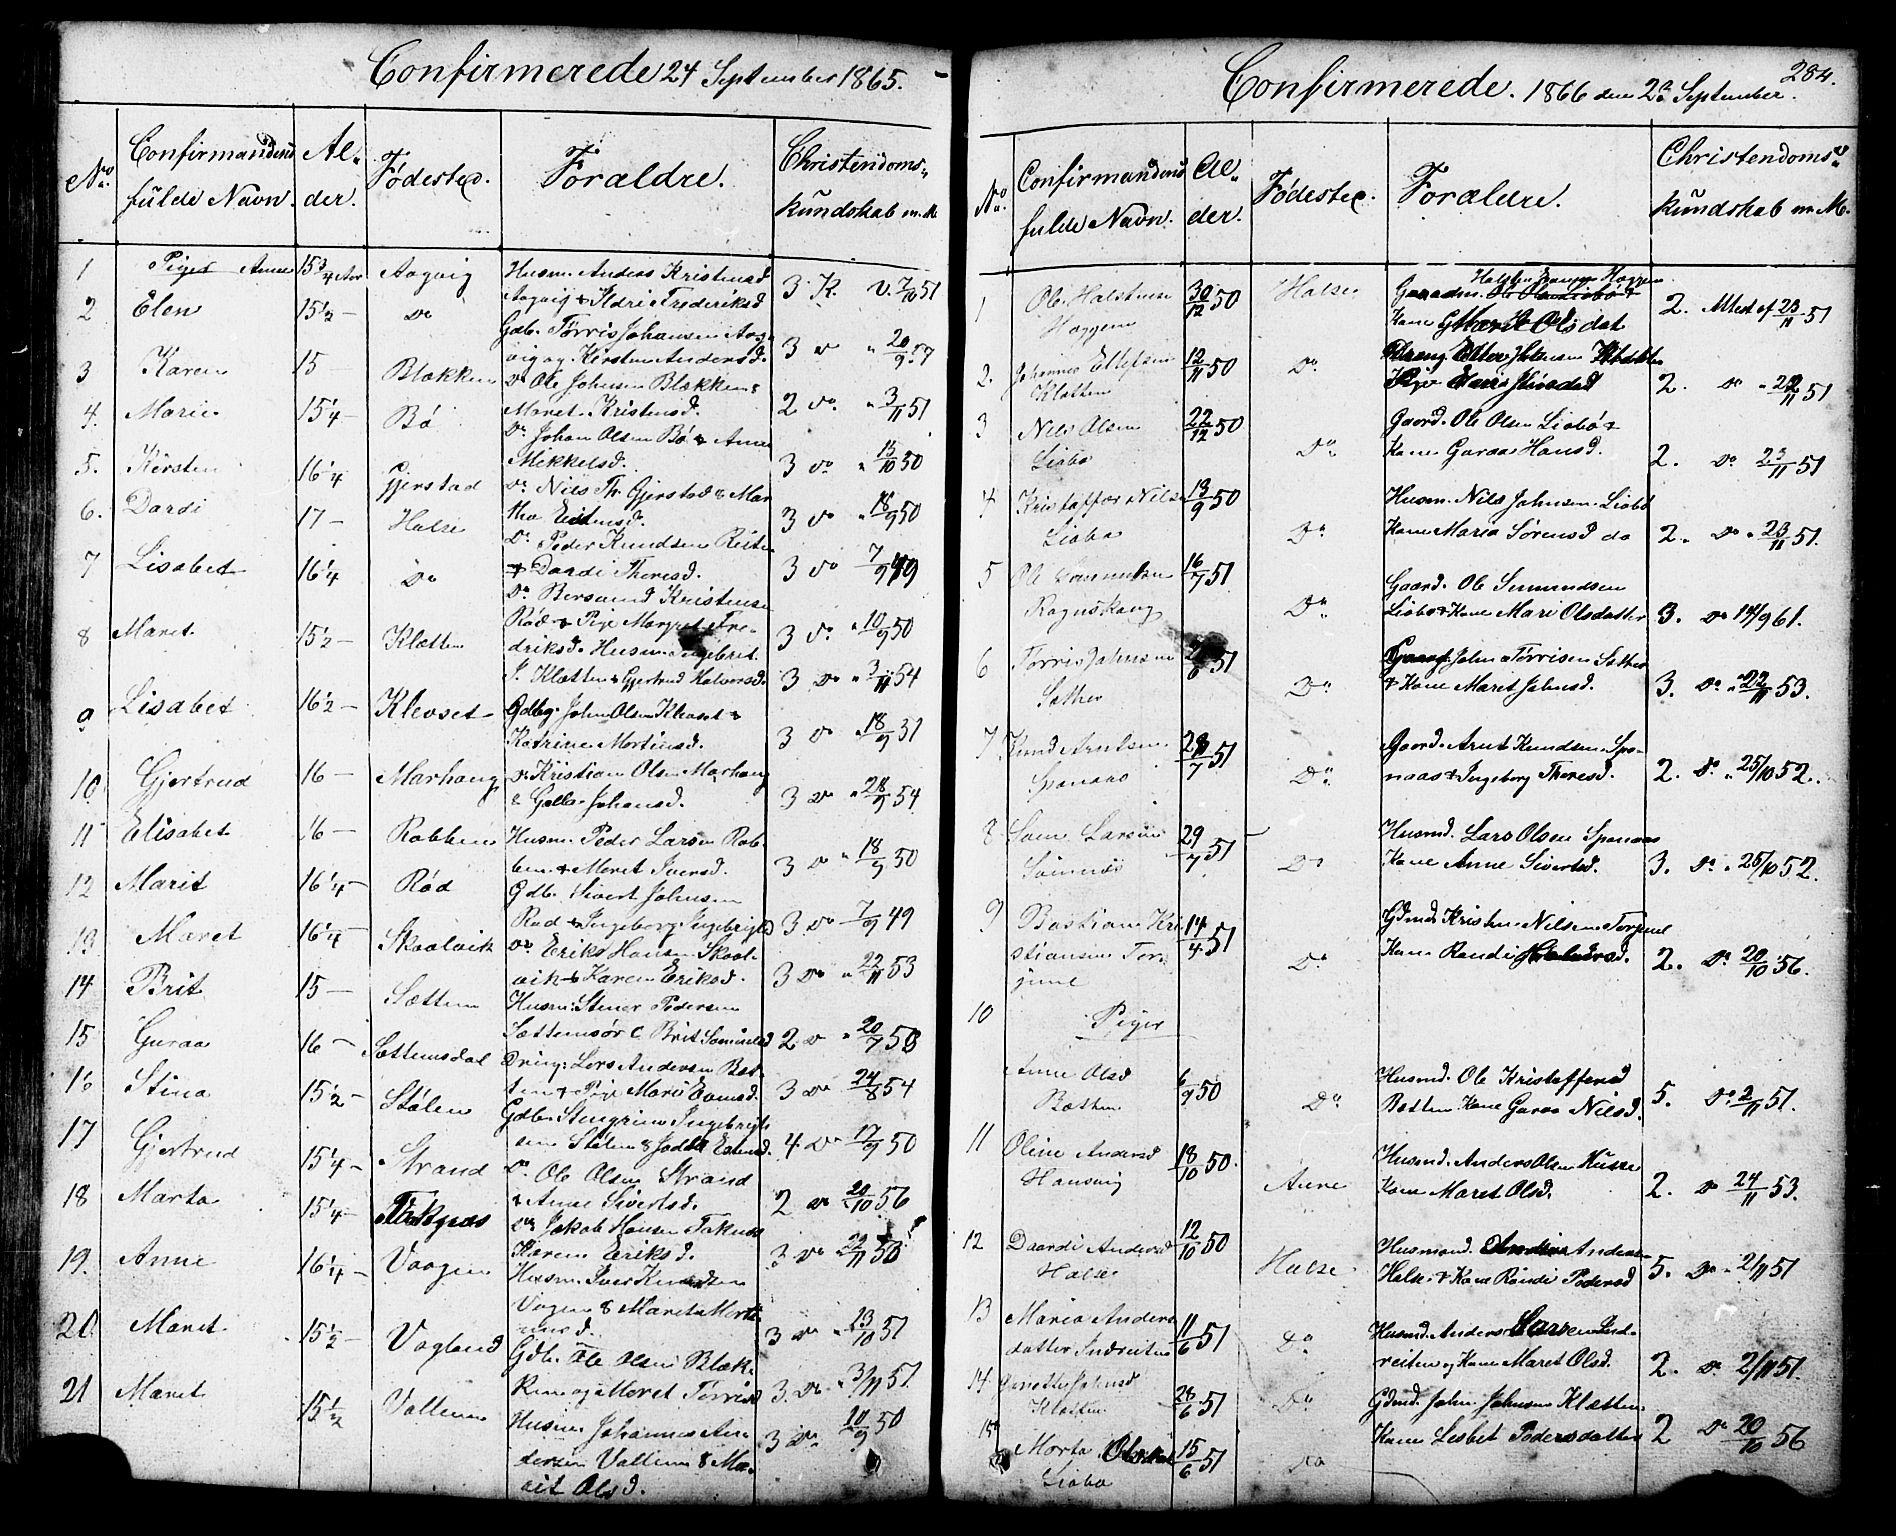 Confirmerede 24 September 1865.
No. Confirmandens fulde Navn. Alder. Fødested. Forældre. Christendomskundskab m. M.
1 Piger Anne 15 3/4 Aar Aagvig Husm. Anders Kristensd
Aagvig & Ildri Frederiksd 3. K. V. 7/10 51
2 Elen 15 1/2 – Do Gdb. Tørris Johansen Aag-
vig og Kirsten Andersd. 3 Do " 20/9
3 Karen 15 Blekken Do Ole Johnsen Blekken &
Maret Kristensd. 2 Do " 3/11 51
4. Marie 15 1/4 – Bø Do Johan Olsen Bø & Anne
Mikkelsd. 3 Do " 15/10 50
5. Kirsten 16 1/4 Gjerstad Do Nils Th. Gjerstad & Mar
tha 3 Do " 18/9 50
6. Dardi 17 – Halse Do Peder Knudsen Reiten
& Dardi Theresd. 3 Do 7/9 49
7 Lisabet 16 1/4 Do Do Bersvend Kristensen
Rød & Pige Margret Fre-
driksd. 3 Do " 10/9 50
8 Maret 15 1/2 – Kletten Husm. Ingebret
J. Kletten & Gjertrud Halvorsd. 3 Do " 3/11 54
9 Lisabet 16 1/2 – Klevset – Gdbg. John Olsen Klevset &
Katrine Mortensd. 3 Do " 18/9 51
10 Gjertrud 16 – Marhaug Do Kristian Olsen Marhaug
& Johansd. 3 Do " 28/9 54
11 Elisabet 16 – Rabben Husm. Peder Larsen Rab-
ben & Meret Iversd. 3 Do " 18/9 50
12 Marit 16 1/4 – Rød Gdb. Sivert Johnsen
Rød & Ingeborg Ingebrigtsd 3 Do 7/9 49
13 Maret 16 1/4 – Skaalvik Do Erik Hansen Skaal-
vik & Karen Eriksd. 3 Do " 22/11 53
14 Brit 15 – Settem Husm: Stener Pedersen
Settemsør & Brit 2 Do " 20/7 53
15 Guraa 16 – Settemsdal Dreng: Lars Andersen Bøt-
ten & Pige Mari Evensd. 3 Do 24/8 54
16 Stina 15 1/2 – Stølen Gdb. Stengrim Ingebrigt
sen Stølen & 4. Do 17/9 50
17 Gjertrud 15 1/4 – Strand Do Ole Olsen Strand
& Anne Sivertsd. 2 Do 20/10 56
18 Marta 15 1/4 – Taknæs Do Jakob Hansen Taknæs
Karen Eriksd. 3 Do 22/11
19. Anne 16 1/4 – Vaagen Husm. Iver Knudsen
Vagen & Maret Morte
nsd. 3 Do 13/10 51
20. Maret 15 1/2 – Vagland Gdb. Ole Olsen Blek-
ken og Meret Tørrisd 3. Do " 3/11 51.
21 Maret 15 1/2 Vullum Husm. Johannes An-
dersen Vullum & Ma-
rit Olsd. 3 Do 10/9 50
284.
Confirmerede. 1866 den 23 September.
No. Confirmandens fulde Navn. Alder. Fødested. Forældre. Christendomskundskab m. M.
1 Ole Halstensen
Haggem 30/12 50 Halse Gaardm. Halsten Haggem
Kone Marit Olsdat 2. Attest af 23/11 51
2. Johannes Ellefsen
Kletten 12/11 50 Do Dreng Johnsen Kletten
Pige 2. Do " 22/11 51
3 Nils Olsen
Liabø 22/12 50 Do Gaard. Ole Olsen Liabø &
Kone Guraa Hansd. 2. Do 23/11 51
4 Kristoffer Nilsen
Liabø 13/9 50 Do Husm. Nils Johnsen Liabø
Kone Maria Sørensd do 2. Do " 23/11 51.
5 Ole
Ragnskaug 16/7 51 Do Gaard. Ole Simundsen
Liabø & Kone Mari Olsdatter 3. Do 14/9 61.
6 Tørris Johnsen
Sæther 51 Do Gaard. John Tørrisen Sæther
& Kone Maret Johnsd. 3. Do " 22/11 53.
7 Knud Arntsen
Spanæs 28/7 51 Do Gaard. Arnt Knudsen Spa-
næs & Ingeborg Theresd. 2. Do " 25/10 52.
8 Larsen 29/7 51 Do Husmd. Lars Olsen Spanæs
Kone Anne Sivertsd. 3. Do " 25/10 52.
9 Bastian Kri
stiansen Tor-
jul 14/4 51 Do Gdmd Kristen Nilsen Torjul
Kone Randi Halvorsd. 2. Do 20/10 56.
10 Piger
Anne Olsd
Bøtten 6/9 50 Do Husmd. Ole Kristoffersd
Bøtten Kone Guraa Nilsd. 5. Do 2/11 51.
11 Oline Andersd
Hansvig 18/10 50. Aure Husmd. Anders Olsen
Kone Maret Olsd. 2. Do 24/11 53.
12 Daardi Andersd
Halse 12/10 50 Halse Husmand. Anders Andersen
Halse & Kone Randi Pedersd 5. Do " 2/11 51
13 Maria Anders
datter Indreiten 11/6 51 Do Husmd. Anders Larsen Ind-
reiten og Kone Maret Olsd. 2. Do 2/11 51.
14 Johnsd
Kletten 28/6 51 Do Gdmd. John Johnsen Kletten
Kone Lesbet Pedersdatter 2 Do 20/10 56
15 Marta Olsdat
Liabø 15/6 51 Do